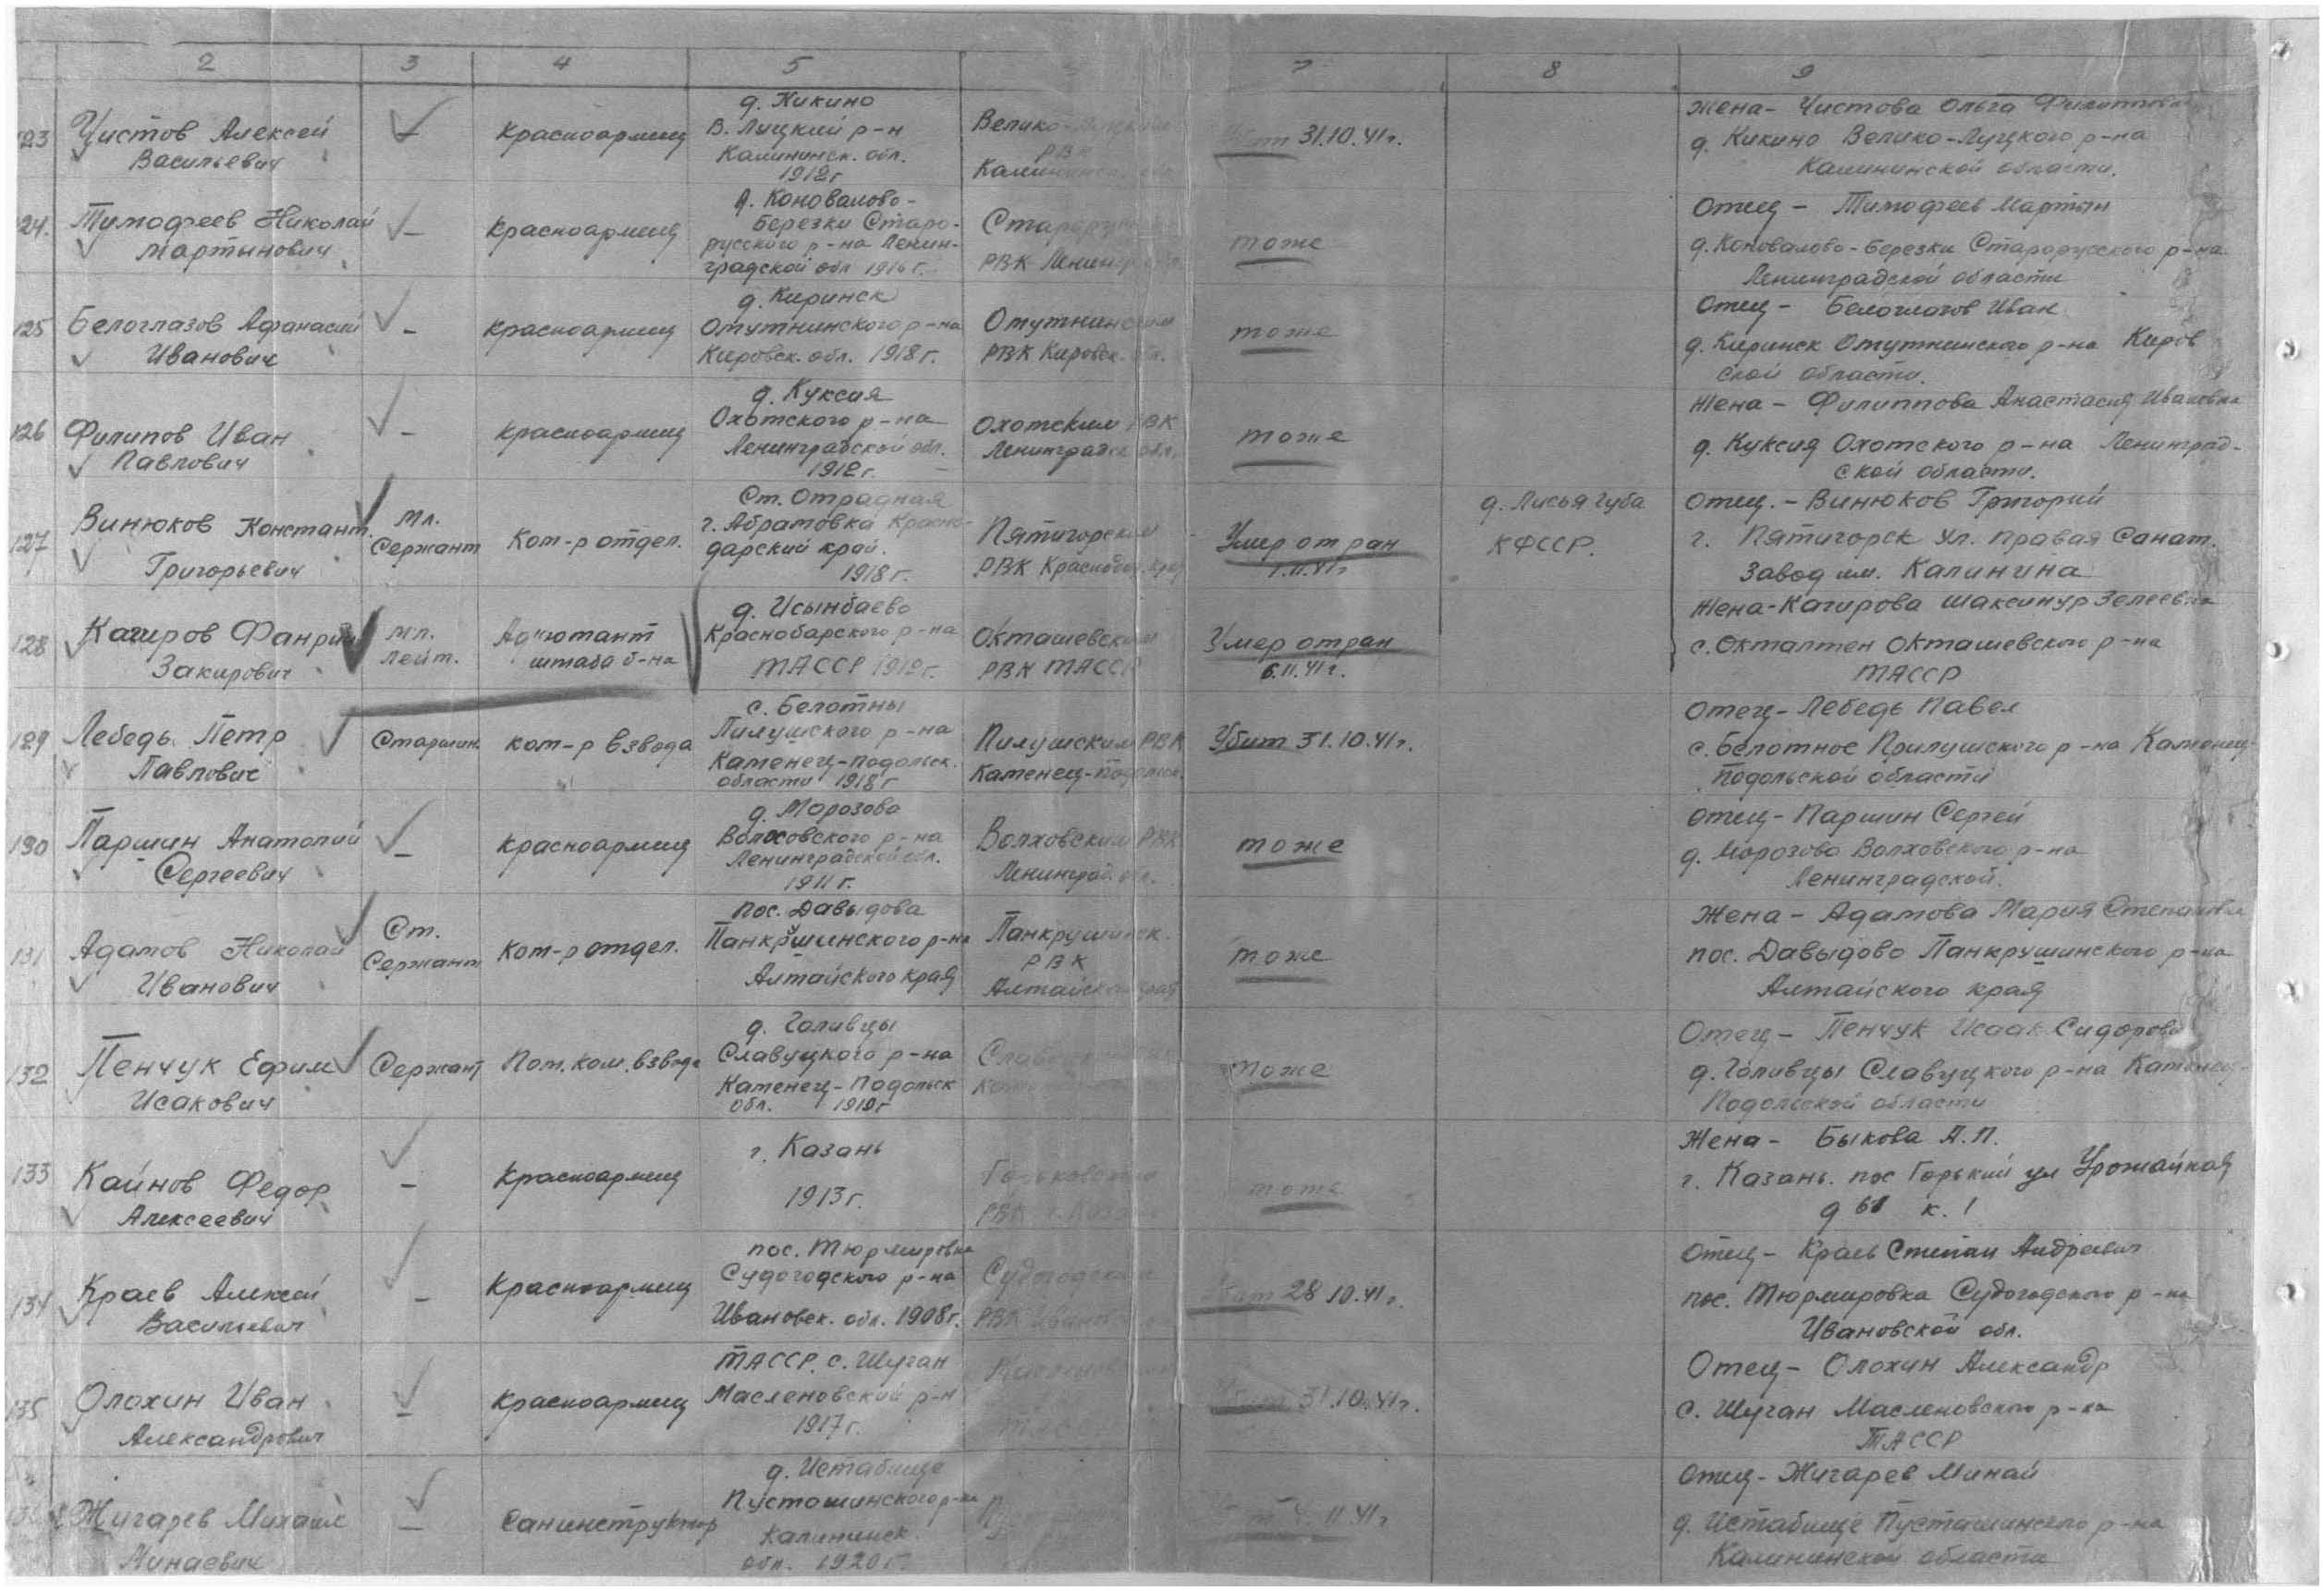 2 3 4 5 7 8 9
123 Чистов Алексей
Васильевич
—
Красноармеец
д. Кикино
В. Луцкий р-н
Калининск. обл.
1912г
Велико-
РВК
31.10.41г.
Жена - Чистова Ольга
д. Кикино Велико-Луцкого р-на
Калининской области.
124. Тимофеев Николай
Мартынович
—
Красноармеец
д. Коновалово-
Березки Старо-
русского р-на Ленин-
градской обл 1916г.
РВК
тоже
Отец - Тимофеев Мартын
д. Коновалово-Березки Старорусского р-на
Ленинградской области
125 Белоглазов Афанасий
Иванович
—
Красноармеец
д. Киринск
Омутнинского р-на
Кировск. обл. 1918г.
Омутнинским
РВК Кировск. обл.
тоже
Отец - Белоглазов Иван
д. Киринск Омутнинского р-на Киров
ской области.
126 Филипов Иван
Павлович
—
Красноармеец
д. Куксия
Охотского р-на
Ленинградской обл.
1912г.
Охотским РВК
Ленинградск обл.
тоже
Жена - Филиппова Анастасия Ивановна
д. Куксия Охотского р-на Ленинград-
ской области.
127 Винюков Констант.
Григорьевич
Мл.
Сержант
Ком-р отдел.
Ст. Отрадная
г. Абрамовка Красно-
дарский край.
1918г.
Пятигорским
РВК Краснодар. край
Умер от ран
1.11.41г
д. Лисья Губа
КФССР.
Отец. - Винюков Григорий
г. Пятигорск ул. Правая Санат.
Завод им. Калинина
128 Кагиров Фанрий
Закирович
Мл.
Лейт.
Адъютант
штаба б-на
д. Исынбаево
Краснобарского р-на
ТАССР 1912г.
Окташевским
РВК ТАССР
Умер от ран
6.11.41г.
Жена - Кагирова Шаксинур Зелеевна
с. Окталтен Окташевского р-на
ТАССР
129 Лебедь Петр
Павлович
Старшин.
ком-р взвода
с. Белотны
Пилушского р-на
Каменец-Подольск.
области 1918г
Пилушским РВК
Каменец-Подольск.
Убит 31.10.41г.
Отец - Лебедь Павел
с. Белотное Прилушского р-на Каменец-
Подольской области
130 Паршин Анатолий
Сергеевич
—
Красноармеец
д. Морозово
Волховского р-на
Ленинградской обл.
1911г.
Волховским РВК
Ленинград. обл.
тоже
Отец - Паршин Сергей
д. Морозово Волховского р-на
Ленинградской.
131 Адамов Николай
Иванович
Ст.
Сержант
Ком-р отдел.
пос. Давыдова
Панкрушинского р-на
Алтайского края
Панкрушинск.
РВК
Алтайского края
тоже
Жена - Адамова Мария Степановна
пос. Давыдово Панкрушинского р-на
Алтайского края
132 Пенчук Ефим
Исакович
Сержант
Пом. ком. взвода
д. Голивцы
Славуцкого р-на
Каменец-Подольск
обл. 1919г
тоже
Отец - Пенчук Исаак Сидорови
д. Голивцы Славуцкого р-на Каменец-
Подольской области
133 Кайнов Федор
Алексеевич
—
Красноармеец
г. Казань
1913г.
РВК
тоже
Жена - Быкова А.П.
г. Казань. пос Горький ул Урожайная
д 61 к. 1
134 Краев Алексей
Васильевич
—
Красноармеец
пос. Тюрмировка
Судогодского р-на
Ивановск. обл. 1908г.
Судогодским
РВК
28 10.41г.
Отец - Краев Степан Андреевич
пос. Тюрмировка Судогодского р-на
Ивановской обл.
135 Олохин Иван
Александрович
—
Красноармеец
ТАССР. с. Шуган
Масленовский р-н
1917г.
Убит 31.10.41г.
Отец - Олохин Александр
с. Шуган Масленовского р-на
ТАССР
Жигарев Михаил
Минаевич
—
Санинструктор
д. Истабище
Пустошинского р-на
Калининск.
обл. 1920г.
11.41г
Отец - Жигарев Минай
д. Истабище Пусташинского р-на
Калининской области